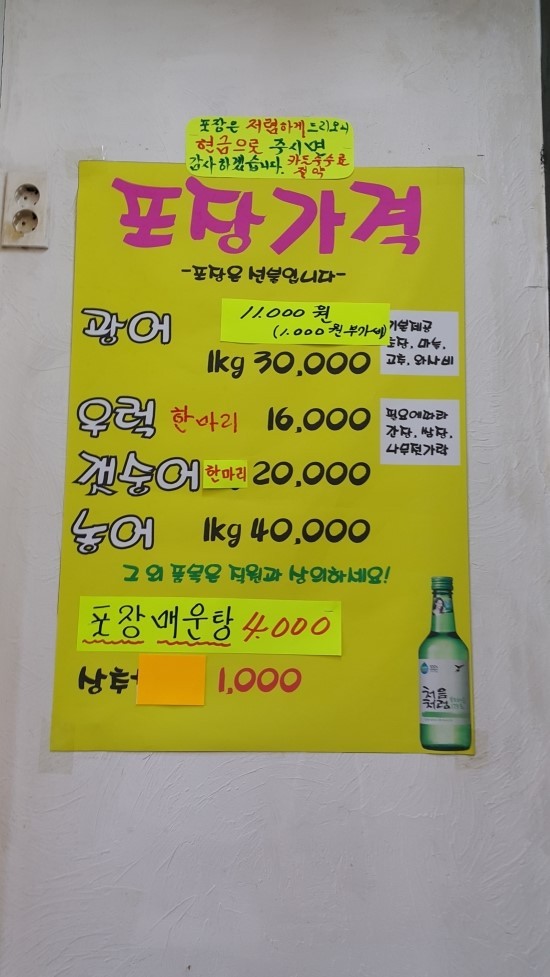 포장은 저렴하게 드리오니
현금으로 주시면
감사하겠습니다. 카드수수료
절약
포장가격
-포장은 선불입니다-
광어
11.000 원
(1.000원 부가세)
1kg 30,000
기본제공
초장, 마늘,
고추, 와사비
우럭 한마리 16,000
필요에따라
간장, 쌈장,
나무젓가락
갯숭어 한마리 20,000
농어 1kg 40,000
그 외 품목은 직원과 상의하세요!
포장 매운탕 4.000
상추 1,000
처음
처럼